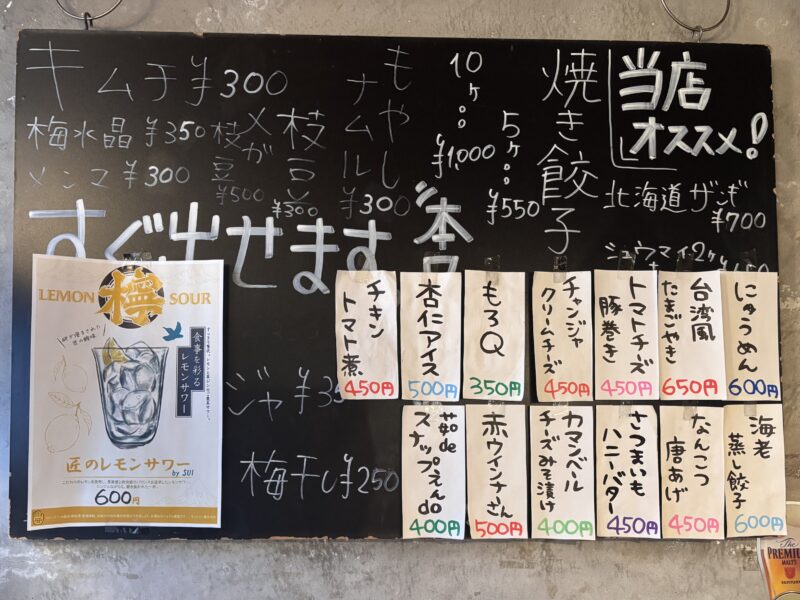 当店
オススメ!
北海道ザンギ
¥700
シュウマイ2ヶ
焼き餃子
5ヶ
¥550
10ヶ
¥1,000
もやし
ナムル
¥300
枝豆
¥300
メガ
枝豆
¥500
キムチ¥300
梅水晶 ¥350
メンマ ¥300
すぐ出せます
ジャ
梅干し¥250
LEMON 檸 SOUR
食事を彩る
レモンサワー
匠のレモンサワー
by SUI
600円
にゅうめん
600円
台湾風
たまごやき
650円
トマトチーズ
豚巻き
450円
チャンジャ
クリームチーズ
450円
もろQ
350円
杏仁アイス
500円
チキン
トマト煮
450円
海老
蒸し餃子
600円
なんこつ
唐あげ
450円
さつまいも
ハニーバター
450円
カマンベール
チーズみそ漬け
400円
赤ウインナーさん
500円
茹de
スナップえんdo
400円
The
PREMIUM
MALT'S
SUNTORY